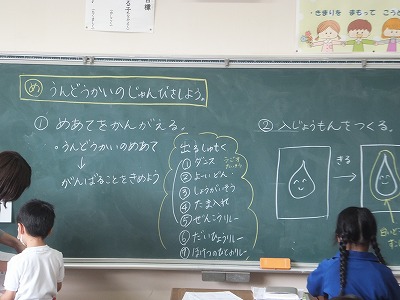 ・きまりを まもって こう
め うんどうかいのじゅんびをしよう。
① めあてをかんがえる。
・うんどうかいのめあて
↓
がんばることをきめよう
出るしゅもく
① ダンス
② よーいどん・
③ しょうがいそう
④ たま入れ
⑤ ぜんこうリレー
⑥ だいひょうリレー
② 入じょうもんをつくる。
きる